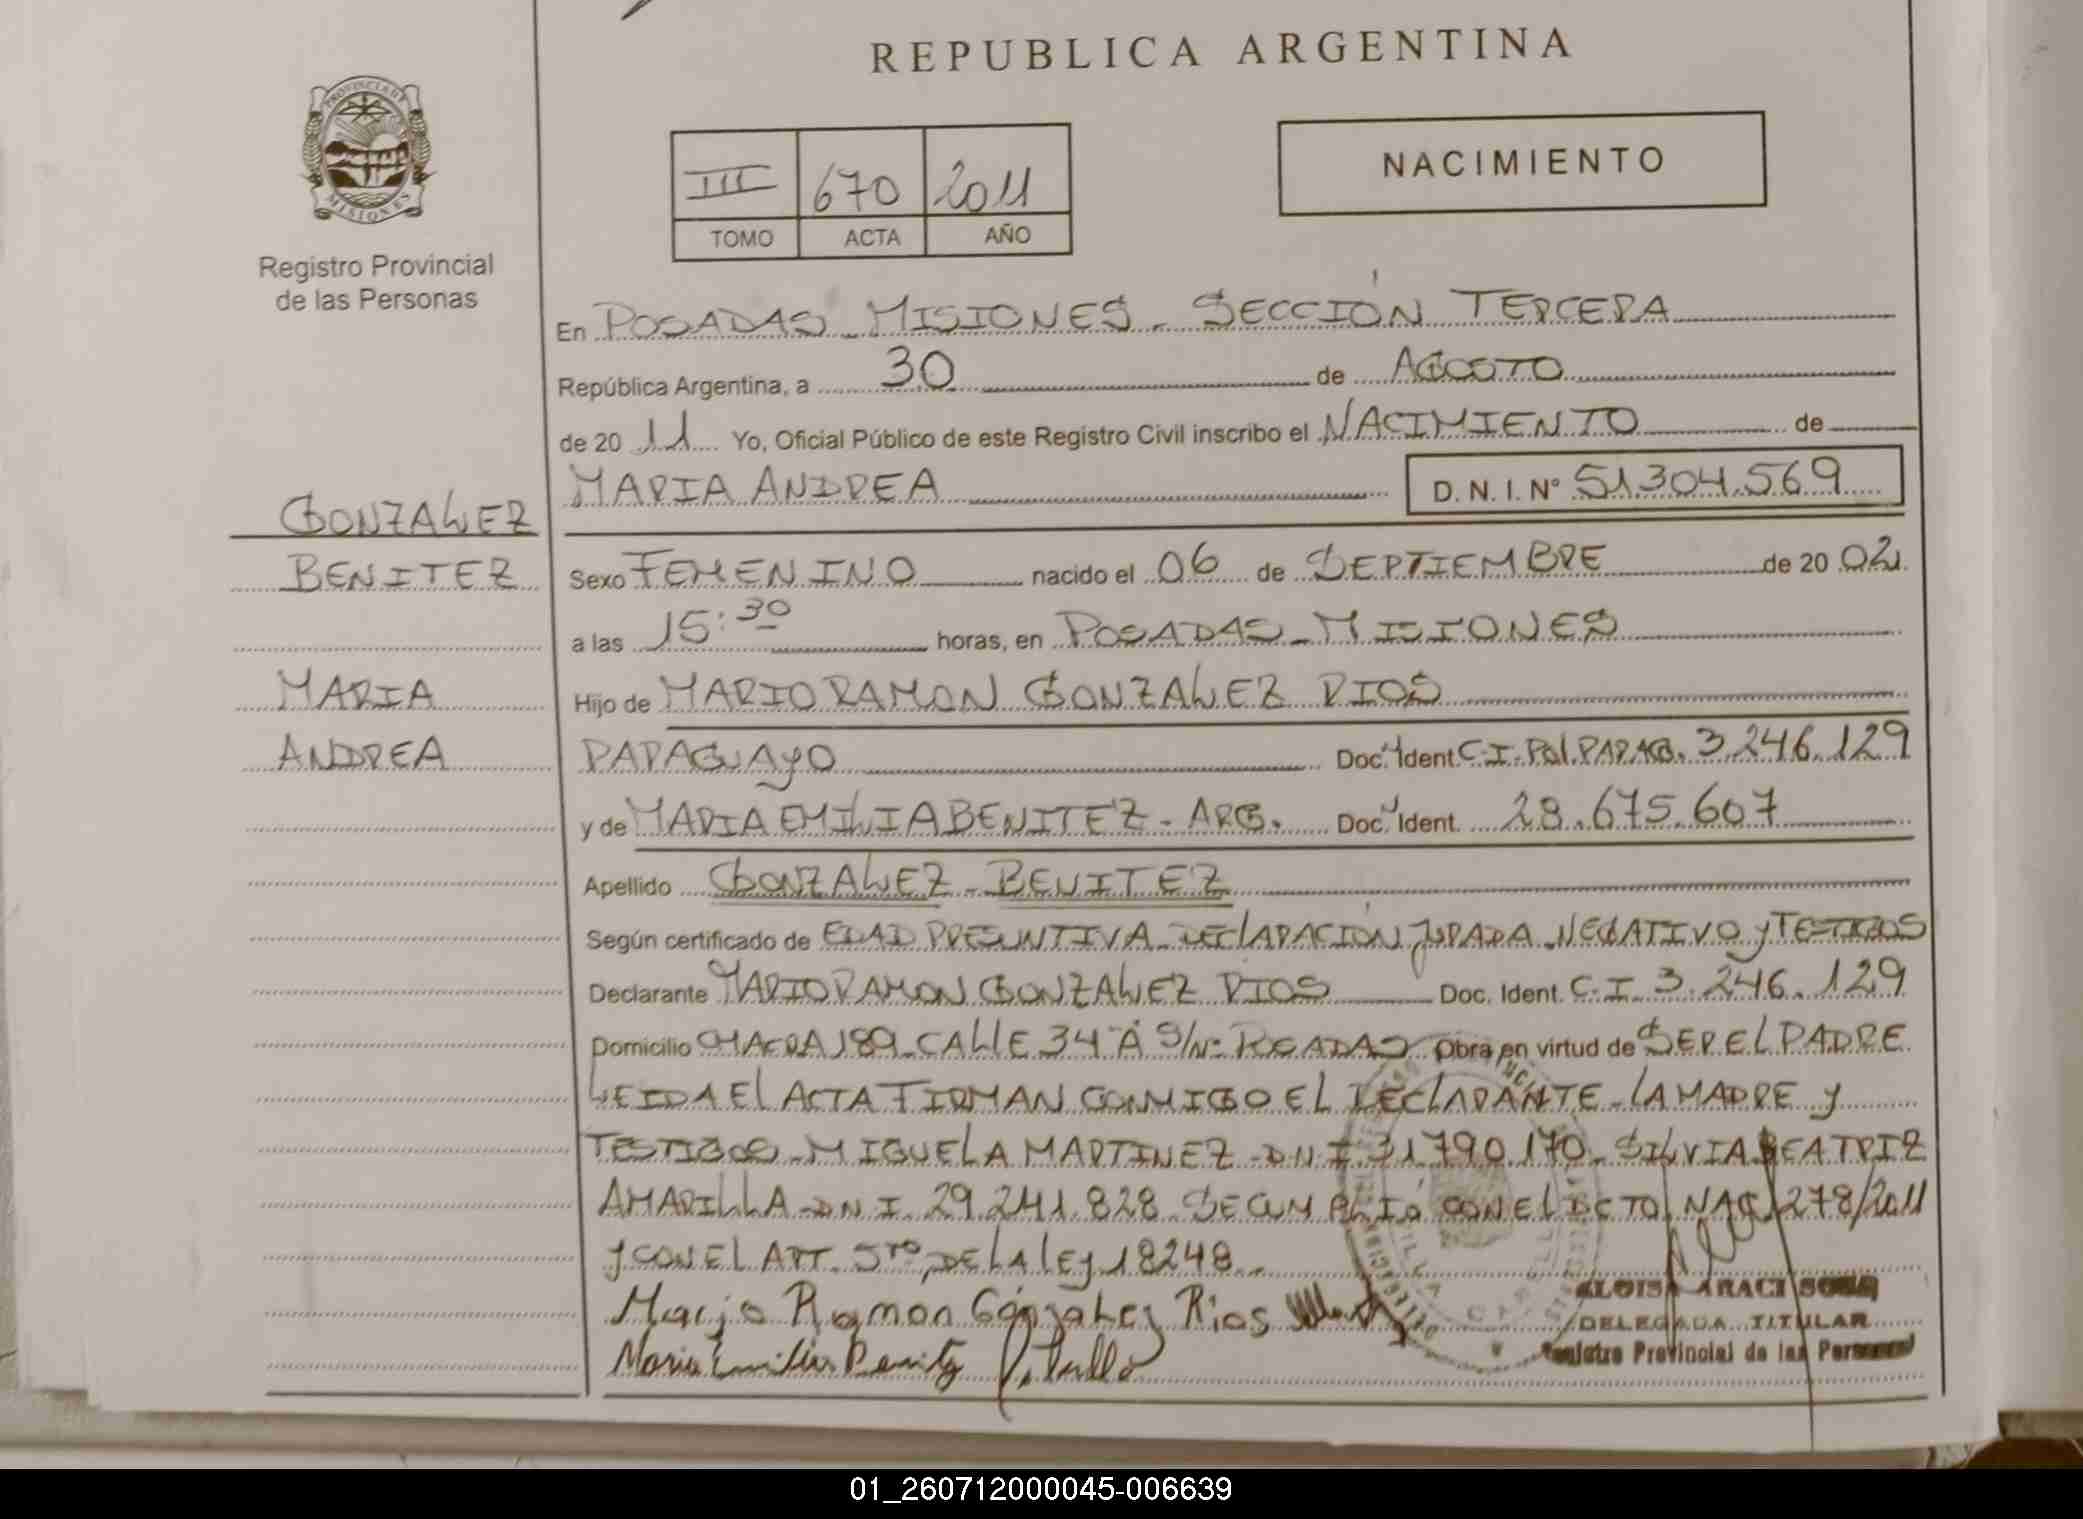 REPUBLICA ARGENTINA
PROVINCIA DE
MISIONES
Registro Provincial
de las Personas
III 670 2011
TOMO ACTA AÑO
NACIMIENTO
GONZALEZ
BENITEZ
MARIA
ANDREA
En POSADAS - MISIONES - SECCIÓN TERCERA
República Argentina, a 30 de AGOSTO
de 20 11 Yo, Oficial Público de este Registro Civil inscribo el NACIMIENTO de
MARIA ANDREA D. N. I. N° 51.304.569
Sexo FEMENINO nacido el 06 de SEPTIEMBRE de 20 02
a las 15:30 horas, en POSADAS - MISIONES
Hijo de MARIO RAMON GONZALEZ RIOS
PARAGUAYO Doc. Ident. C.I. Pol. PARAG. 3.246.129
y de MARIA EMILIA BENITEZ - ARG. Doc. Ident. 28.675.607
Apellido GONZALEZ - BENITEZ
Según certificado de EDAD PRESUNTIVA - DECLARACIÓN JURADA - NEGATIVO y TESTIGOS
Declarante MARIO RAMON GONZALEZ RIOS Doc. Ident. C.I. 3.246.129
Domicilio CHACRA 189 - CALLE 34 A S/N° POSADAS Obra en virtud de SER EL PADRE
LEIDA EL ACTA FIRMAN CONMIGO EL DECLARANTE - LA MADRE y
TESTIGOS - MIGUELA MARTINEZ - D.N.I. 31.790.170 - SILVIA BEATRIZ
AMARILLA - D.N.I. 29.241.828. SE CUMPLIÓ CON EL DCTO. NAC. 278/2011
y CON EL ART. 5TO, DE LA LEY 18248.
Mario Ramon Gonzalez Rios
Maria Emilia Benitez
DELEGADA TITULAR
Registro Provincial de las Personas
01_260712000045-006639